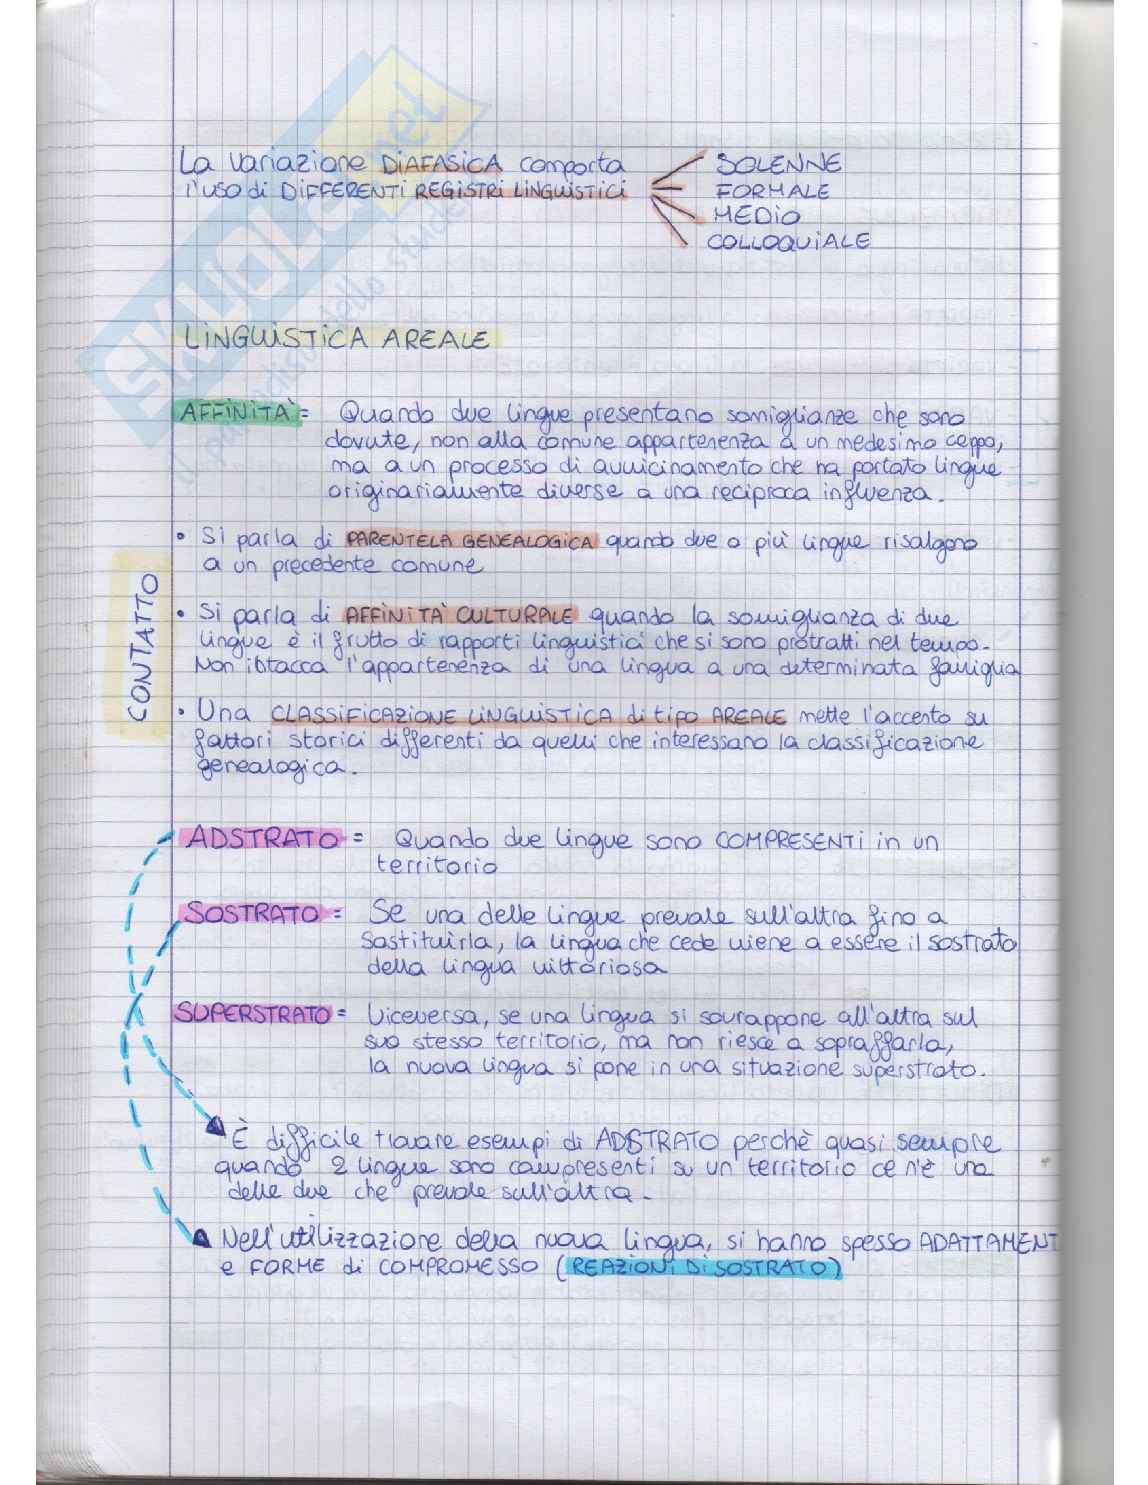 La variazione DIAFASICA comporta
l'uso di DIFFERENTI REGISTRI LINGUISTICI
SOLENNE
FORMALE
MEDIO
COLLOQUIALE
LINGUISTICA AREALE
AFFINITÀ = Quando due lingue presentano somiglianze che sono
dovute, non alla comune appartenenza a un medesimo ceppo,
ma a un processo di avvicinamento che ha portato lingue
originariamente diverse a una reciproca influenza.
CONTATTO
• Si parla di PARENTELA GENEALOGICA quando due o più lingue risalgono
a un precedente comune
• Si parla di AFFINITÀ CULTURALE quando la somiglianza di due
lingue è il frutto di rapporti linguistici che si sono protratti nel tempo.
Non intacca l'appartenenza di una lingua a una determinata famiglia
• Una CLASSIFICAZIONE LINGUISTICA di tipo AREALE mette l'accento su
fattori storici differenti da quelli che interessano la classificazione
genealogica.
ADSTRATO = Quando due lingue sono COMPRESENTI in un
territorio
SOSTRATO = Se una delle lingue prevale sull'altra fino a
sostituirla, la lingua che cede viene a essere il sostrato
della lingua vittoriosa
SUPERSTRATO = Viceversa, se una lingua si sovrappone all'altra sul
suo stesso territorio, ma non riesce a sopraffarla,
la nuova lingua si pone in una situazione superstrato.
È difficile trovare esempi di ADSTRATO perchè quasi sempre
quando 2 lingue sono compresenti su un territorio ce n'è una
delle due che prevale sull'altra.
Nell'utilizzazione della nuova lingua, si hanno spesso ADATTAMENTI
e FORME di COMPROMESSO (REAZIONI DI SOSTRATO)
SKUOLA.net